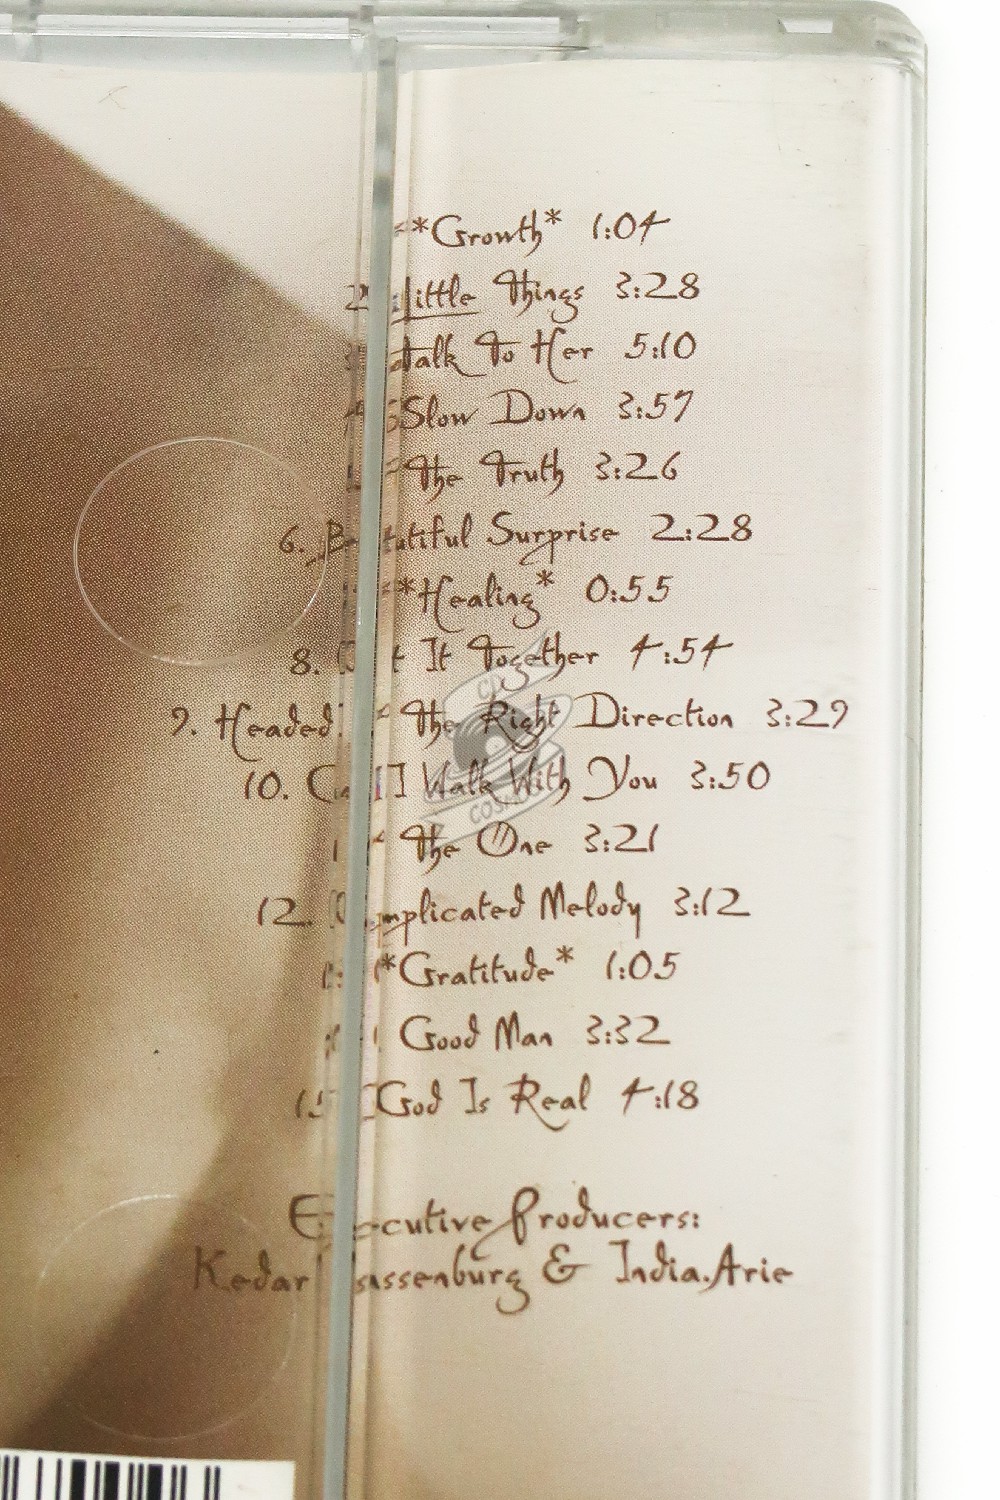 *Growth* 1:04
Little Things 3:28
Talk To Her 5:10
Slow Down 3:57
The Truth 3:26
6. Beautiful Surprise 2:28
*Healing* 0:55
8. Get It Together 4:54
9. Headed In The Right Direction 3:29
10. Can I Walk With You 3:50
The One 3:21
12. Complicated Melody 3:12
*Gratitude* 1:05
Good Man 3:32
15. God Is Real 4:18
CD
COSMOS
Executive Producers:
Kedar Massenburg & India.Arie